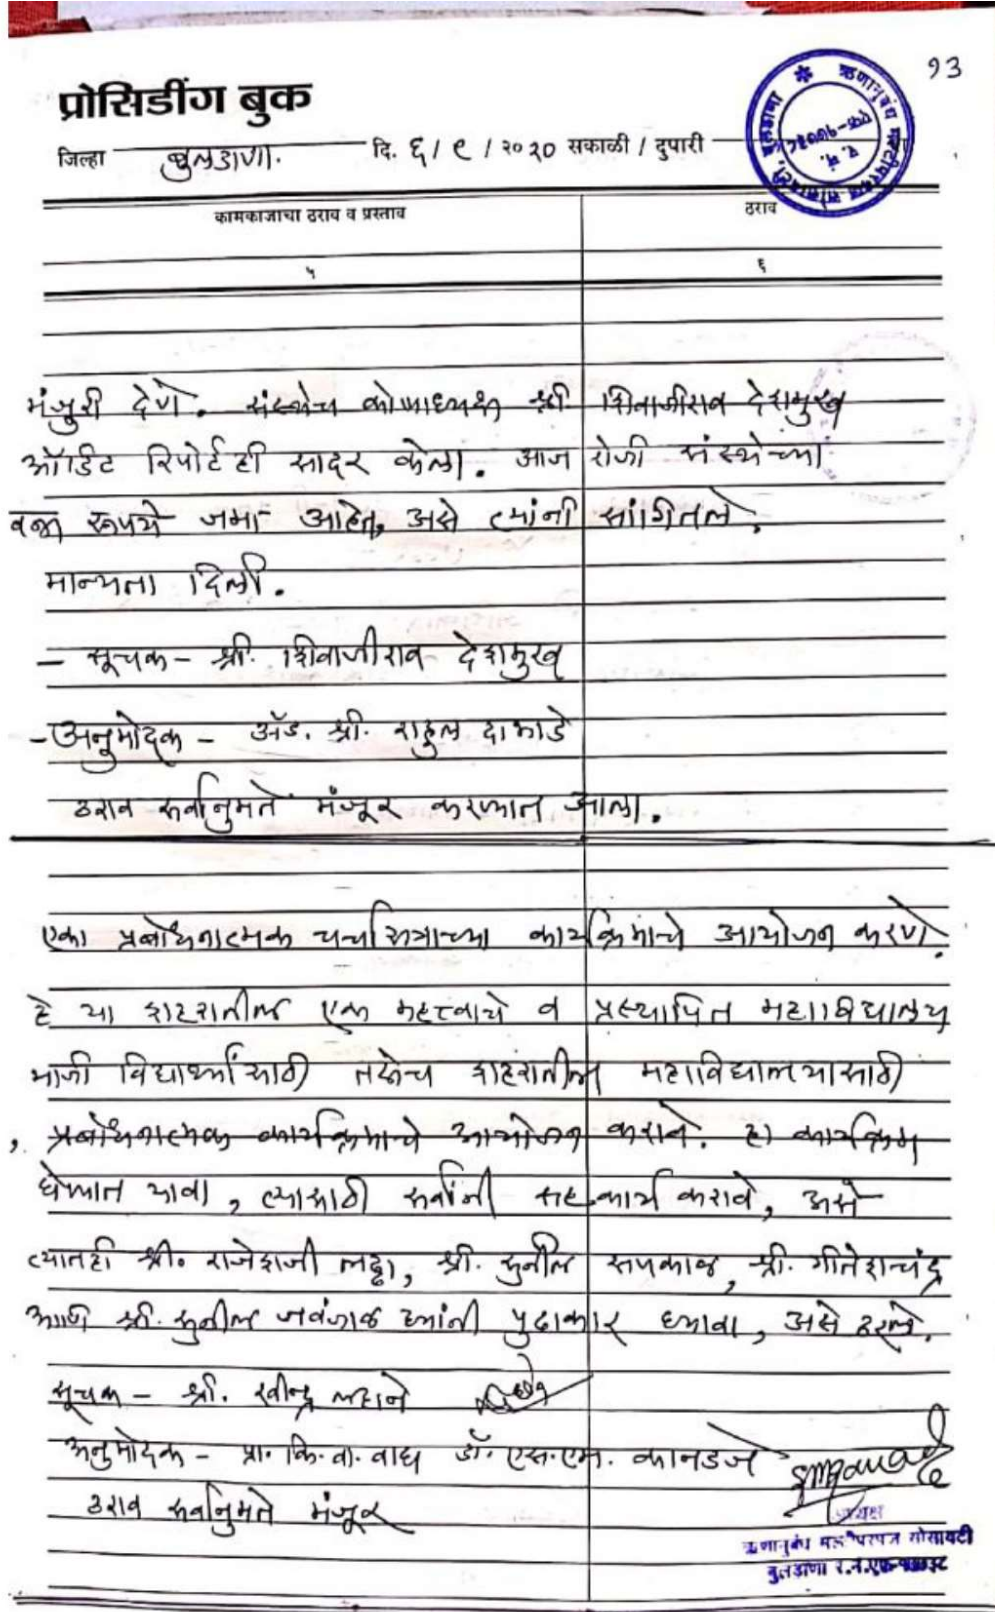 १३
प्रोसिडींग बुक
जिल्हा बुलडाणा. दि. ६ / ९ / २०२० सकाळी / दुपारी
कामकाजाचा ठराव व प्रस्ताव ठराव
५ ६
मंजुरी देणे. संस्थेच कोषाध्यक्ष श्री शिवाजीराव देशमुख
ऑडिट रिपोर्ट ही सादर केला. आज रोजी संस्थेच्या
रूपये जमा आहेत, असे त्यांनी सांगितले.
मान्यता दिली.
- सूचक - श्री. शिवाजीराव देशमुख
- अनुमोदक - ॲड. श्री. राहुल दाभाडे
ठराव सर्वानुमते मंजूर करण्यात आला.
एका प्रबोधनात्मक चर्चासत्राच्या कार्यक्रमाचे आयोजन करणे.
हे या शहरातील एक महत्त्वाचे व प्रस्थापित महाविद्यालय
माजी विद्यार्थ्यांसाठी तसेच शहरातील महाविद्यालयासाठी
, प्रबोधनात्मक कार्यक्रमाचे आयोजन करावे. हा कार्यक्रम
घेण्यात यावा, त्यासाठी सर्वांनी सहकार्य करावे, असे
त्यातही श्री. राजेशजी लद्धा, श्री. सुनील सपकाळ, श्री. गीतेशचंद्र
आणि श्री. सुनील जवंजाळ यांनी पुढाकार घ्यावा, असे ठरले.
सूचक - श्री. रवीन्द्र लहाने
अनुमोदक - प्रा. कि. वा. वाघ डॉ. एस. एम. कानडजे
ठराव सर्वानुमते मंजूर
अध्यक्ष
ऋणानुबंध मल्टीपरपज सोसायटी
बुलडाणा र.नं.